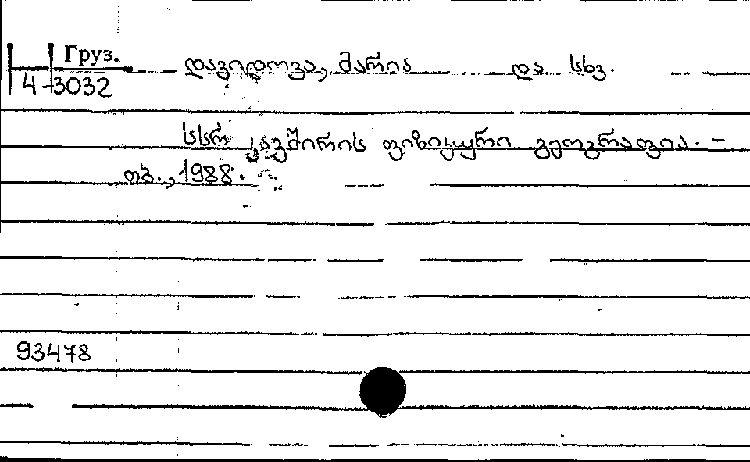 Груз.
4-3032
დავიდოვა, მარია და სხვ.
სსრ კავშირის ფიზიკური გეოგრაფია. –
თბ., 1988.
93478